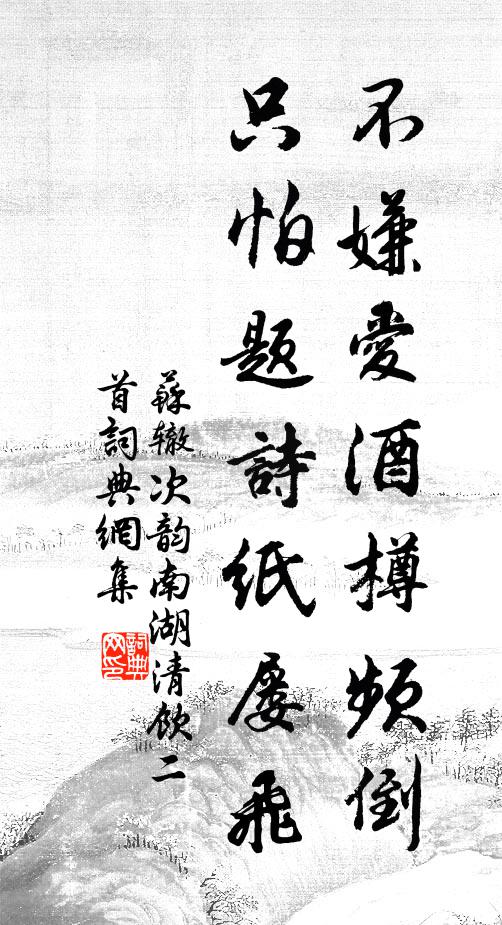 不嫌愛酒樽頻倒
只怕題詩紙屡飛
蘇辙次韵南湖清飲二
首詞典網集
詞典网印